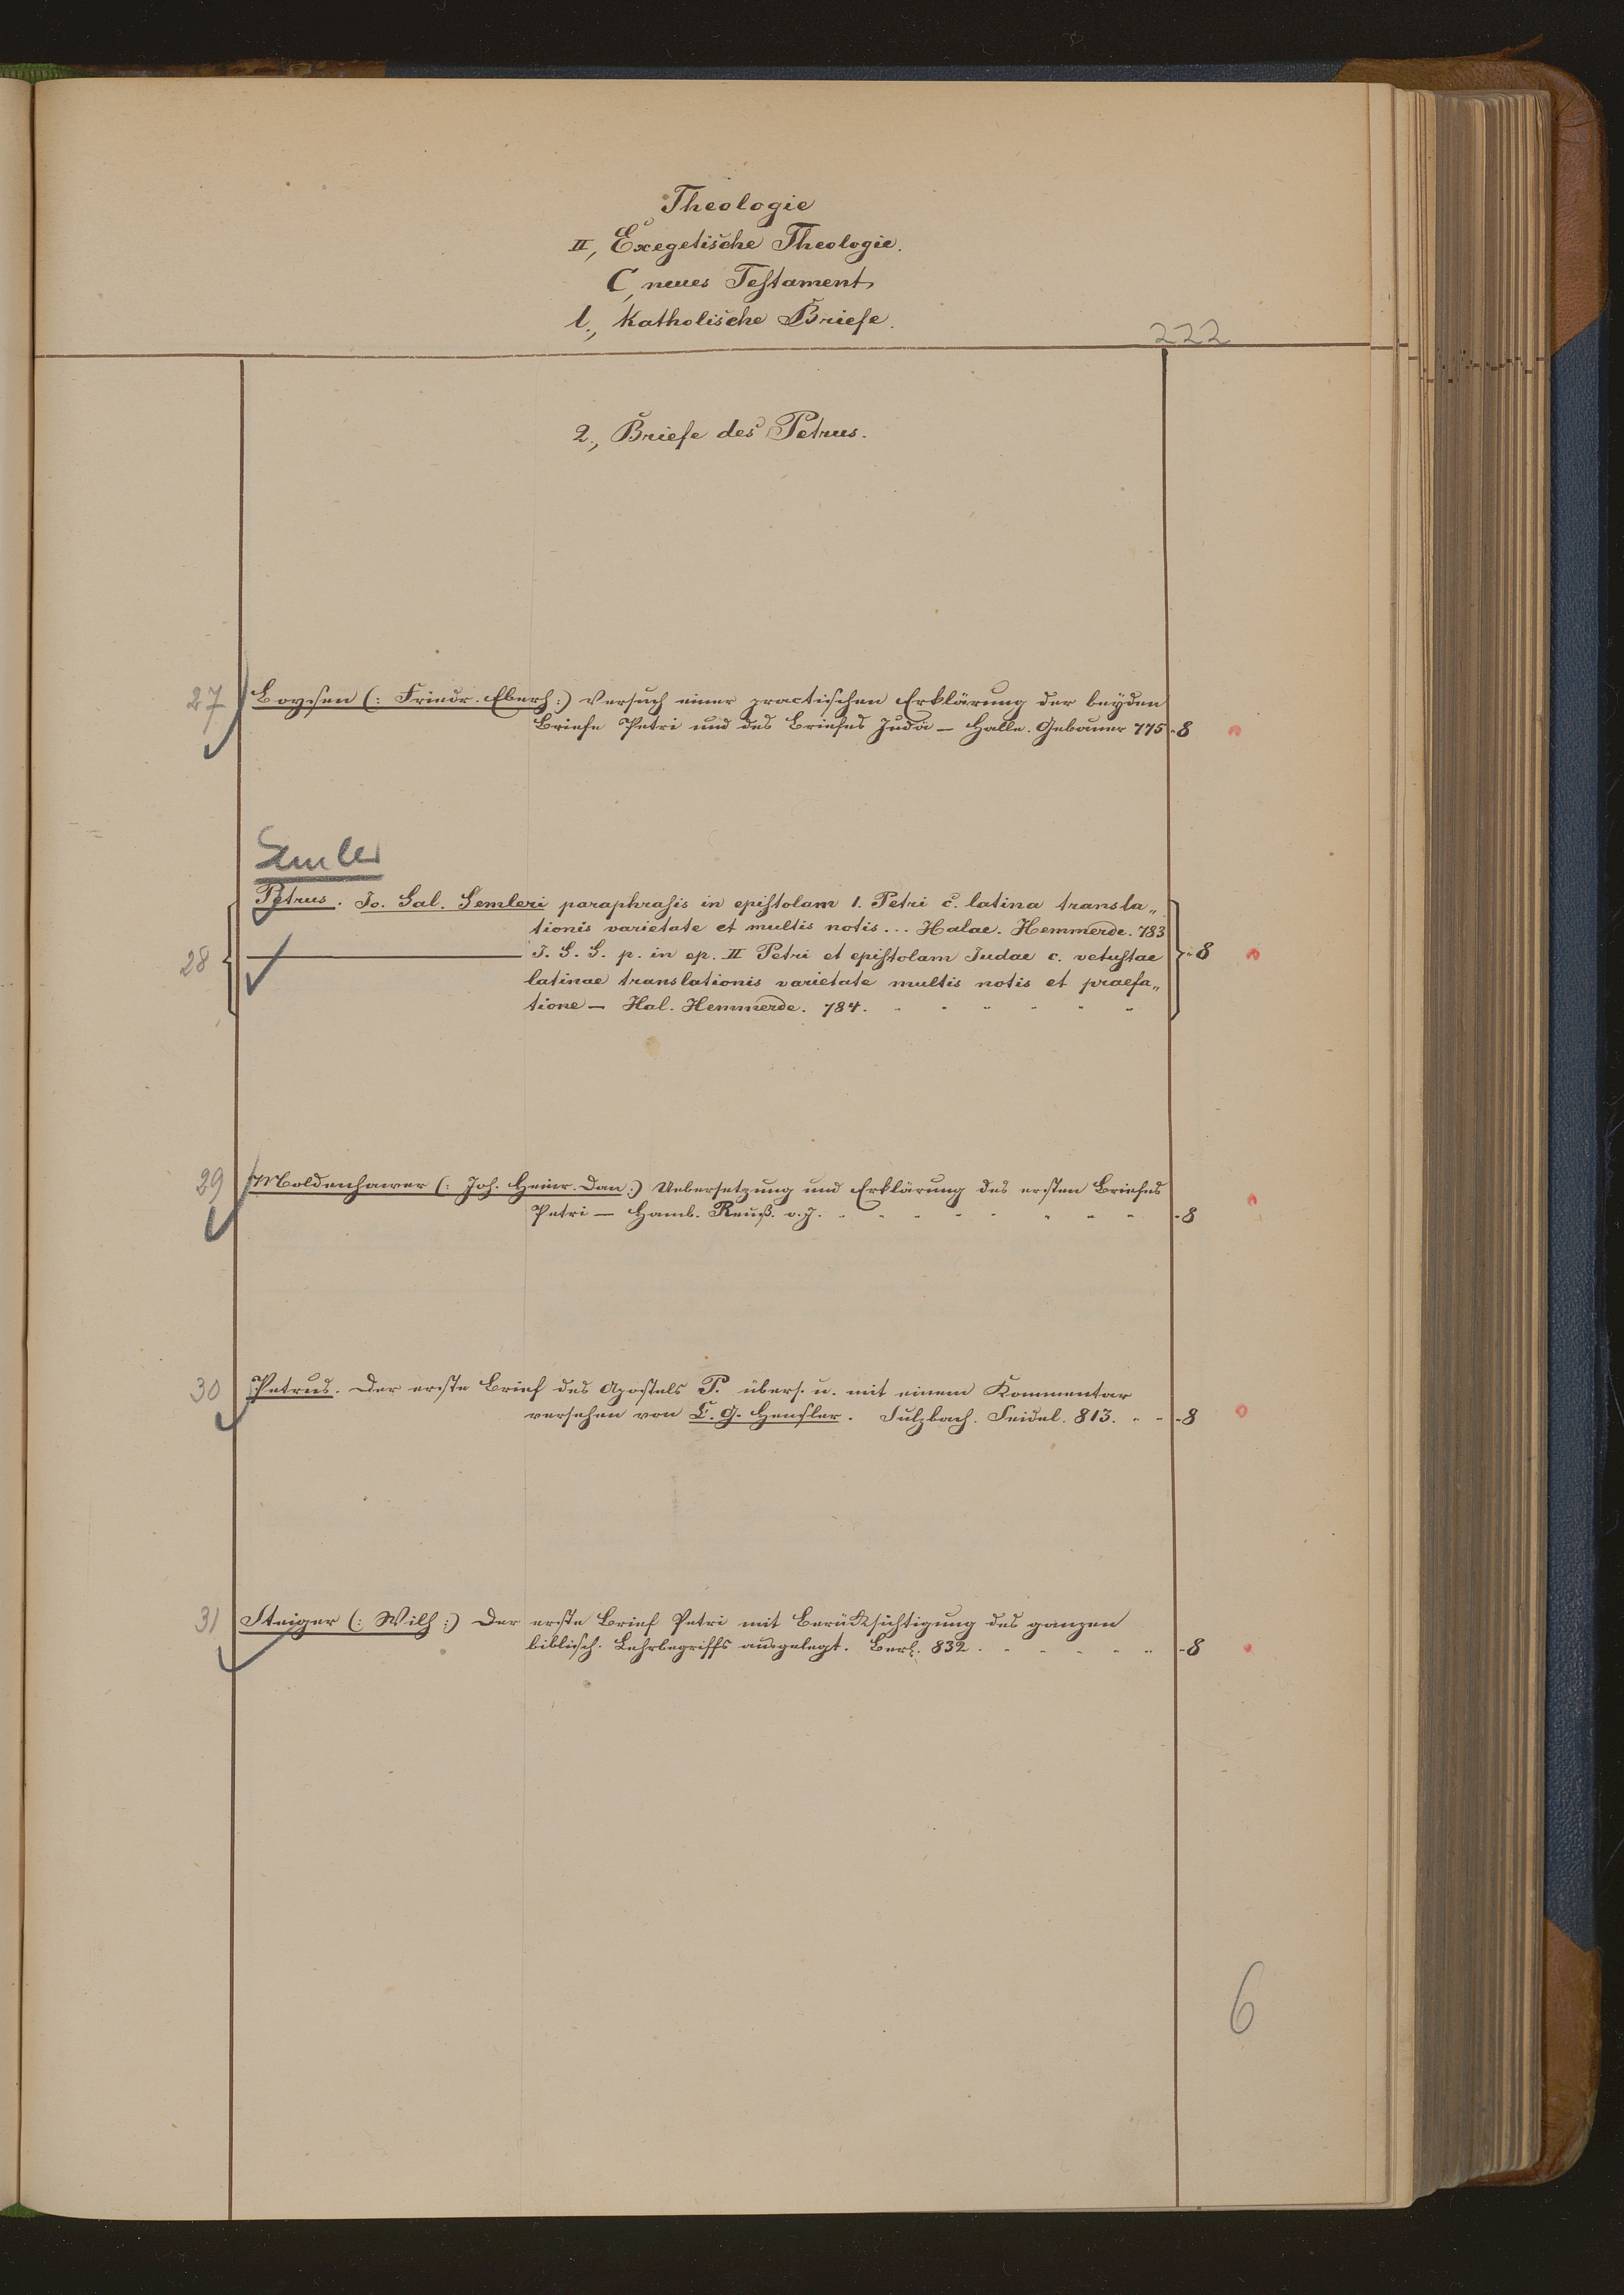 Theologie
II, Exegetische Theologie.
C, neues Testament
l., Katholische Briefe.
222
2., Briefe des Petrus.
27 Boysen (: Friedr. Eberh:) Versuch einer practischen Erklärung der beyden
Briefe Petri und des Briefes Judä — Halle. Gebauer 775 - 8
Semler
Petrus. Jo. Sal. Semleri paraphrasis in epistolam 1. Petri c. latina transla„
tionis varietate et multis notis... Halae. Hemmerde. 783
28 ——— J. S. S. p. in ep. II Petri et epistolam Judae c. vetustae - 8
latinae translationis varietate multis notis et praefa„
tione — Hal. Hemmerde. 784.
29 Moldenhawer (: Joh. Heinr. Dan:) Uebersetzung und Erklärung des ersten Briefes
Petri — Hamb. Reuß. o. J. - 8
30 Petrus. Der erste Brief des Apostels P. übers. u. mit einem Kommentar
versehen von C. G. Hensler. Sulzbach. Seidel. 813. - 8
31 Steiger (: Wilh:) Der erste Brief Petri mit Berücksichtigung des ganzen
biblisch. Lehrbegriffs ausgelegt. Berl. 832. - 8
6